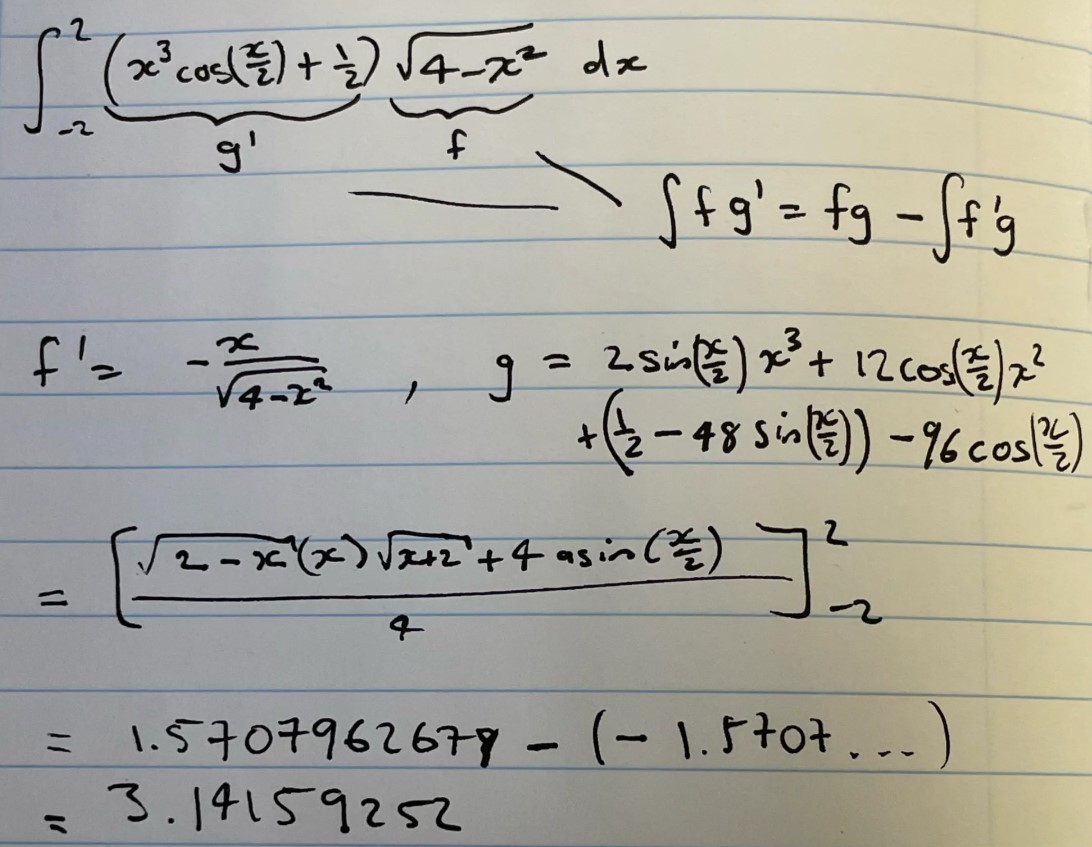 ∫₋₂² (x³cos(x/2) + 1/2) √(4-x²) dx
g' f
∫fg' = fg - ∫f'g
f' = -x/√(4-x²) , g = 2sin(x/2)x³ + 12cos(x/2)x²
+(1/2 - 48 sin(x/2)) - 96cos(x/2)
= [(√(2-x)(x)√(x+2) + 4 asin(x/2))/4]₋₂²
= 1.5707962679 - (-1.5707...)
= 3.14159252